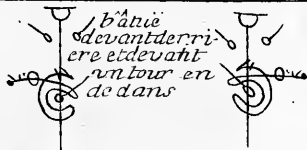 bâtuë
devant derri-
ere et devant
un tour en
dedans